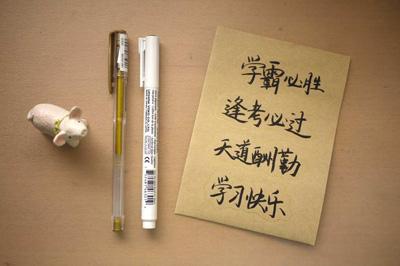 学霸必胜
逢考必过
天道酬勤
学习快乐